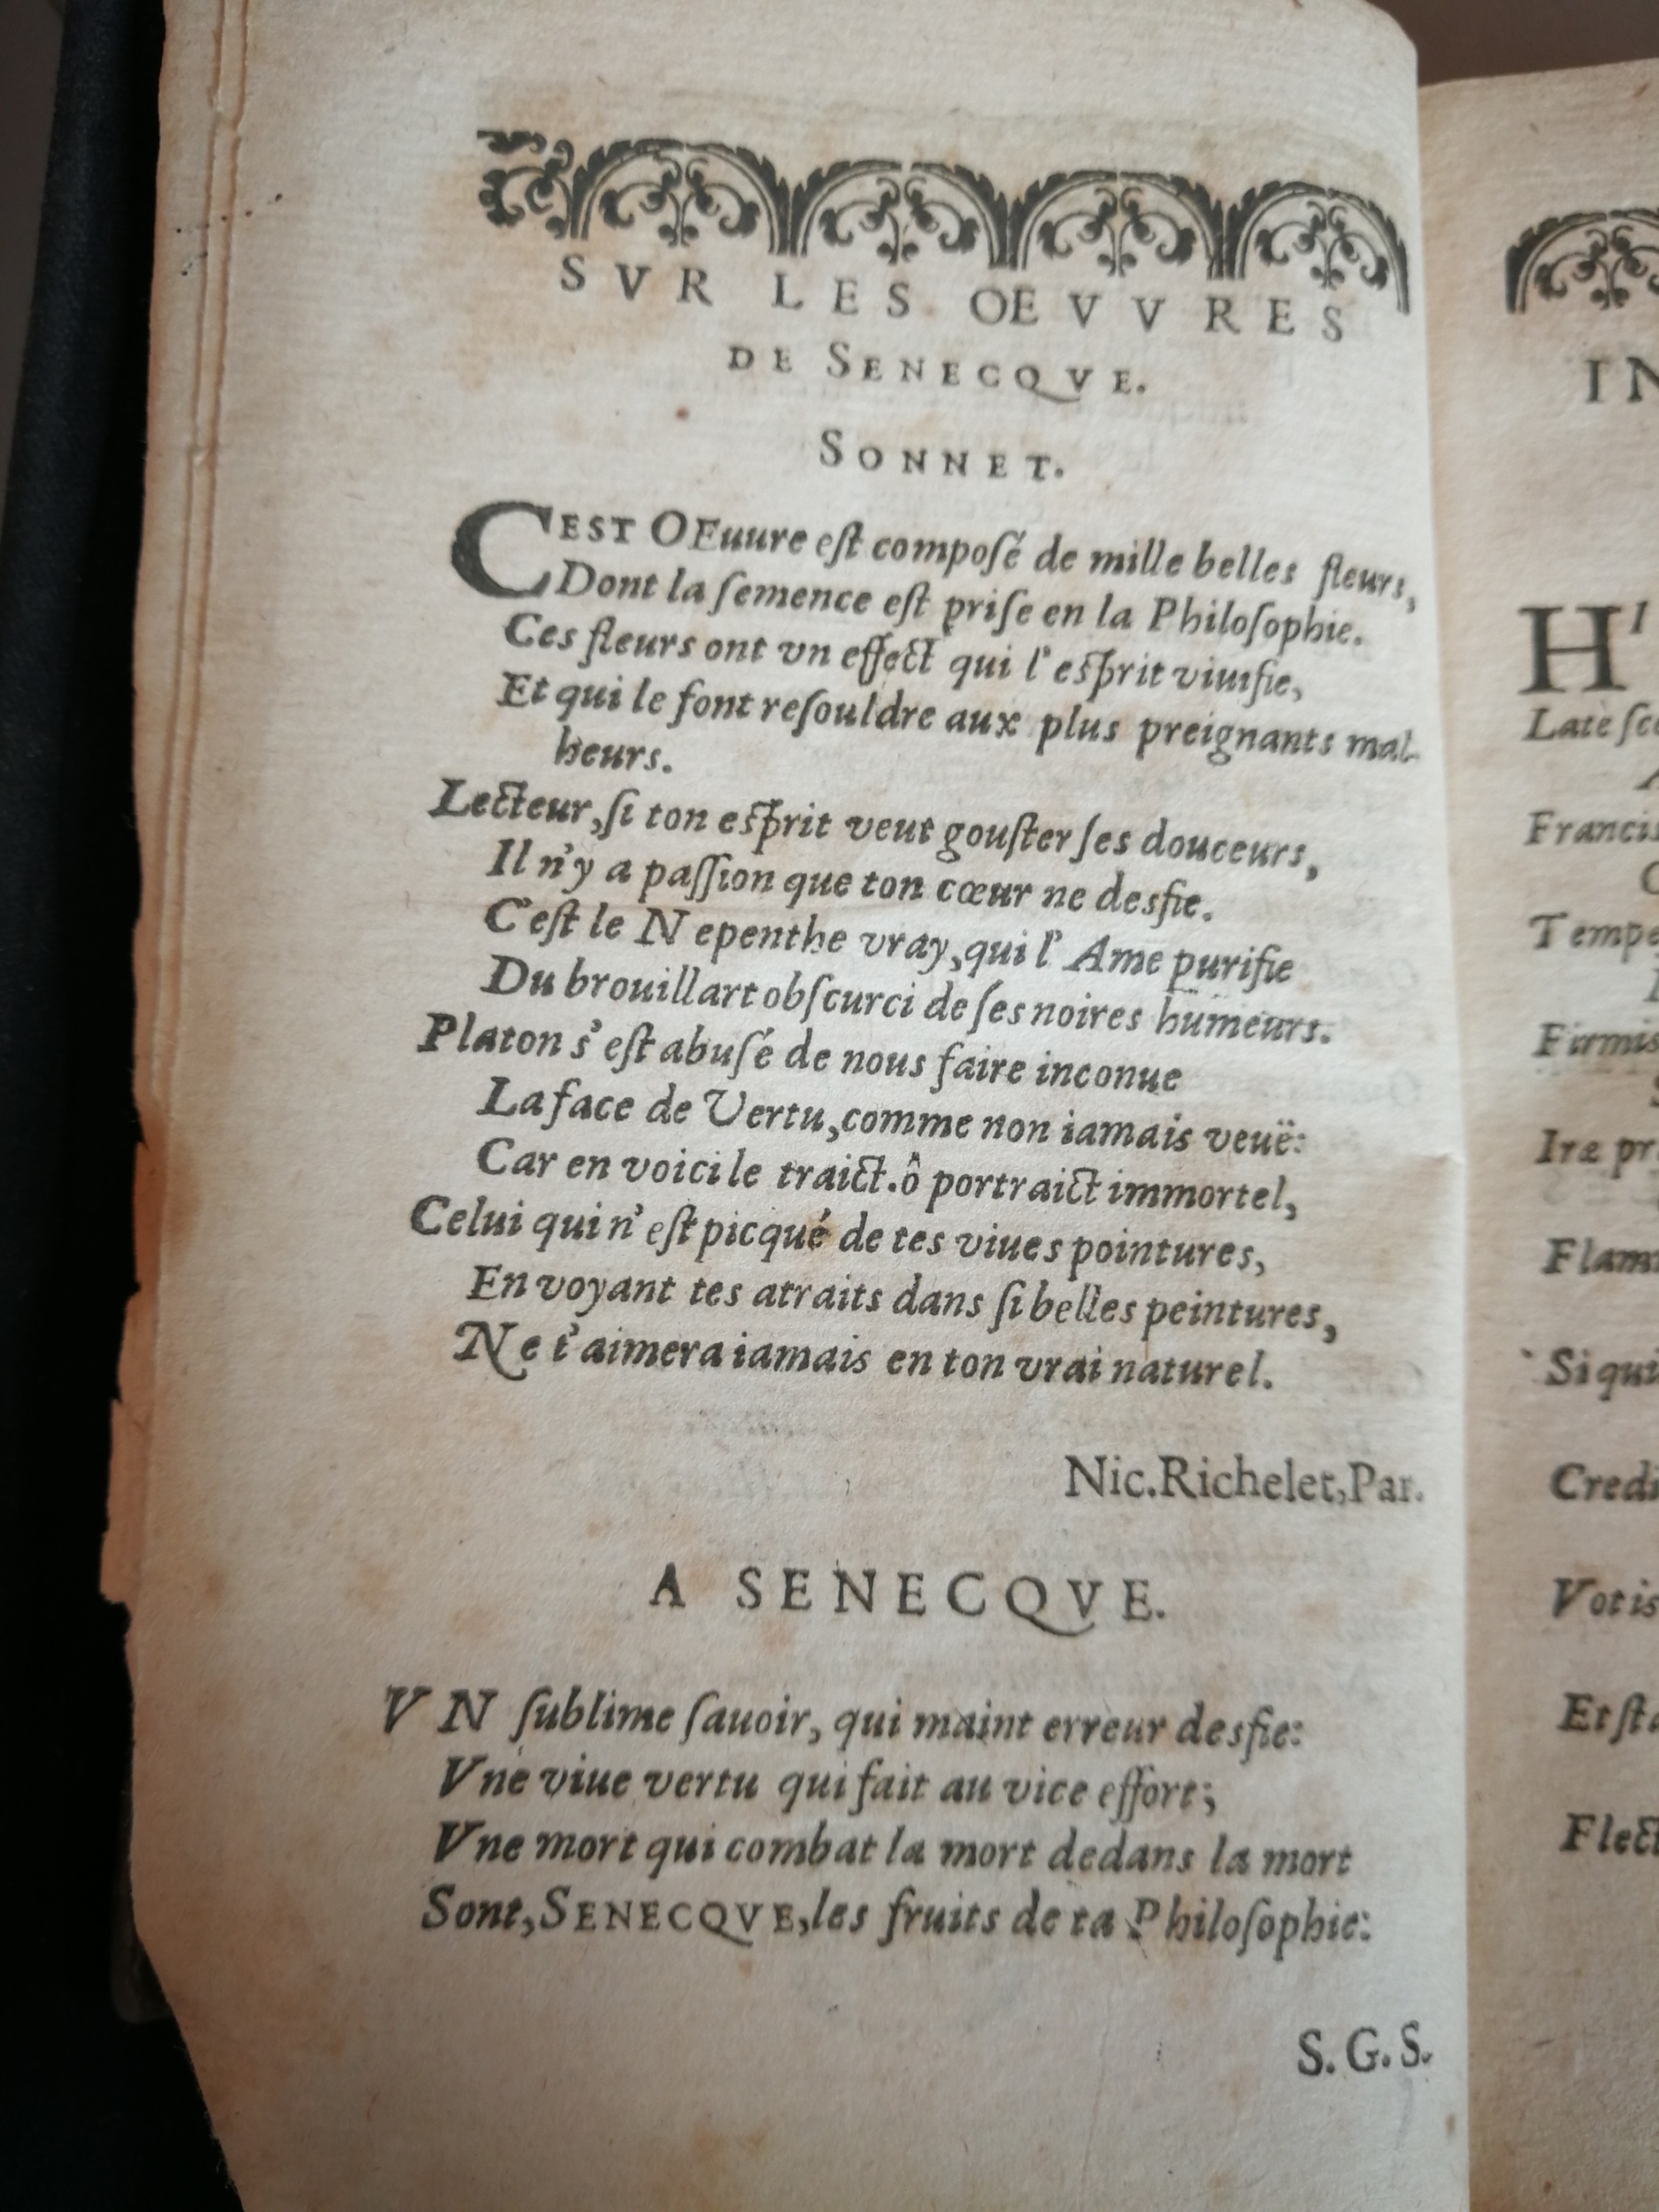 SVR LES OEVVRES
DE SENECQVE.
SONNET.
CEST OEuure eſt compoſé de mille belles fleurs,
Dont la ſemence eſt priſe en la Philoſophie.
Ces fleurs ont vn effect qui l'eſprit viuifie,
Et qui le font reſouldre aux plus preignants mal-
heurs.
Lecteur, ſi ton eſprit veut gouſter ſes douceurs,
Il n'y a paſſion que ton cœur ne desfie.
C'eſt le Nepenthe vray, qui l'Ame purifie
Du brouillart obſcurci de ſes noires humeurs.
Platon s'eſt abuſé de nous faire inconue
La face de Vertu, comme non iamais veuë:
Car en voici le traict. ô portraict immortel,
Celui qui n'eſt picqué de tes viues pointures,
En voyant tes atraits dans ſi belles peintures,
Ne t'aimera iamais en ton vrai naturel.
Nic. Richelet, Par.
A SENECQVE.
VN ſublime ſauoir, qui maint erreur desfie:
Vne viue vertu qui fait au vice effort;
Vne mort qui combat la mort dedans la mort
Sont, SENECQVE, les fruits de ta Philoſophie:
S. G. S.
IN
HI
Late
Francis
Tempe
Firmis
Iræ
Flam
Si qui
Credi
Votis
Et
Flect